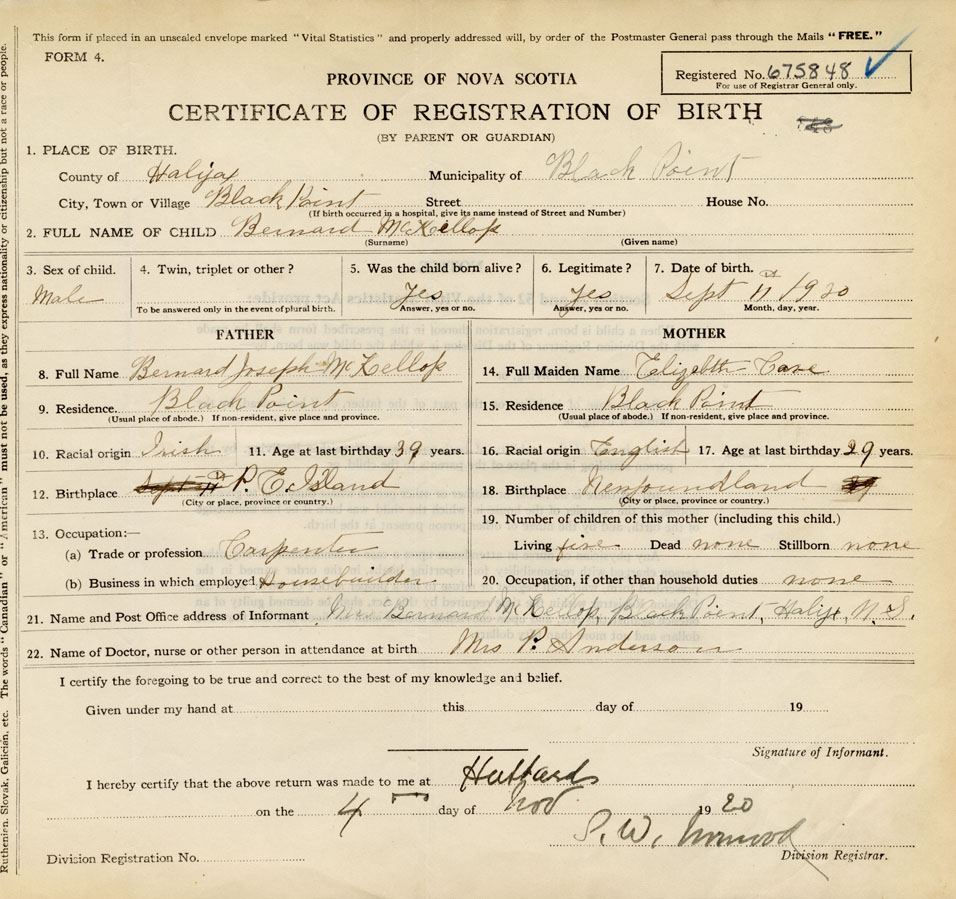 This form if placed in an unsealed envelope marked "Vital Statistics" and properly addressed will, by order of the Postmaster General pass through the Mails "FREE."
FORM 4.
Registered No. 675848 ✓
For use of Registrar General only.
PROVINCE OF NOVA SCOTIA
CERTIFICATE OF REGISTRATION OF BIRTH
(BY PARENT OR GUARDIAN)
1. PLACE OF BIRTH.
County of Halifax Municipality of Black Point
City, Town or Village Black Point Street House No.
(If birth occurred in a hospital, give its name instead of Street and Number)
2. FULL NAME OF CHILD Bernard McKellop
(Surname) (Given name)
3. Sex of child. Male
4. Twin, triplet or other?
To be answered only in the event of plural birth.
5. Was the child born alive? Yes
Answer, yes or no.
6. Legitimate? Yes
Answer, yes or no.
7. Date of birth. Sept 11th 1920
Month, day, year.
FATHER
8. Full Name Bernard Joseph McKellop
9. Residence. Black Point
(Usual place of abode.) If non-resident, give place and province.
10. Racial origin Irish 11. Age at last birthday 39 years.
12. Birthplace P. E. Island
(City or place, province or country.)
13. Occupation:—
(a) Trade or profession Carpenter
(b) Business in which employed Housebuilder
MOTHER
14. Full Maiden Name Elizabth
15. Residence Black Point
(Usual place of abode.) If non-resident, give place and province.
16. Racial origin English 17. Age at last birthday 29 years.
18. Birthplace Newfoundland
(City or place, province or country.)
19. Number of children of this mother (including this child.)
Living five Dead none Stillborn none
20. Occupation, if other than household duties none
21. Name and Post Office address of Informant Mrs Bernard McKellop, Black Point, Halifx, N.S.
22. Name of Doctor, nurse or other person in attendance at birth Mrs P. Anderson
I certify the foregoing to be true and correct to the best of my knowledge and belief.
Given under my hand at this day of 19
Signature of Informant.
I hereby certify that the above return was made to me at Hubbards
on the 4 day of Nov 1920
S. W. Norwood
Division Registrar.
Division Registration No.
Ruthenien, Slovak, Galician, etc. The words "Canadian" or "American" must not be used, as they express nationality or citizenship but not a race or people.